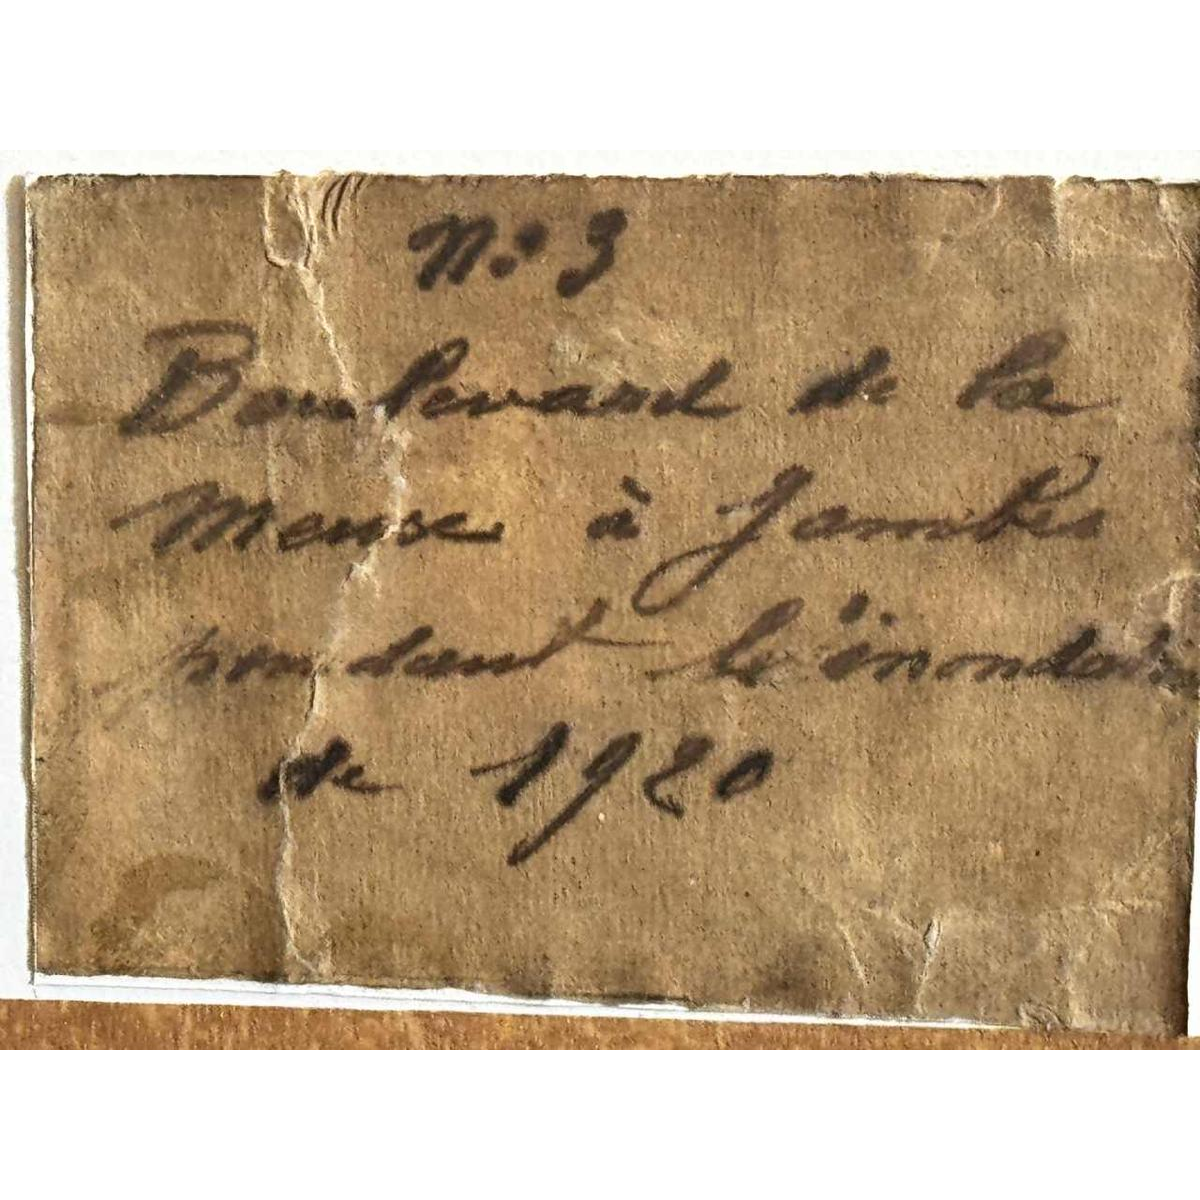 N° 3
Boulevard de la
Meuse à Jambes
pendant l'inondation
de 1920